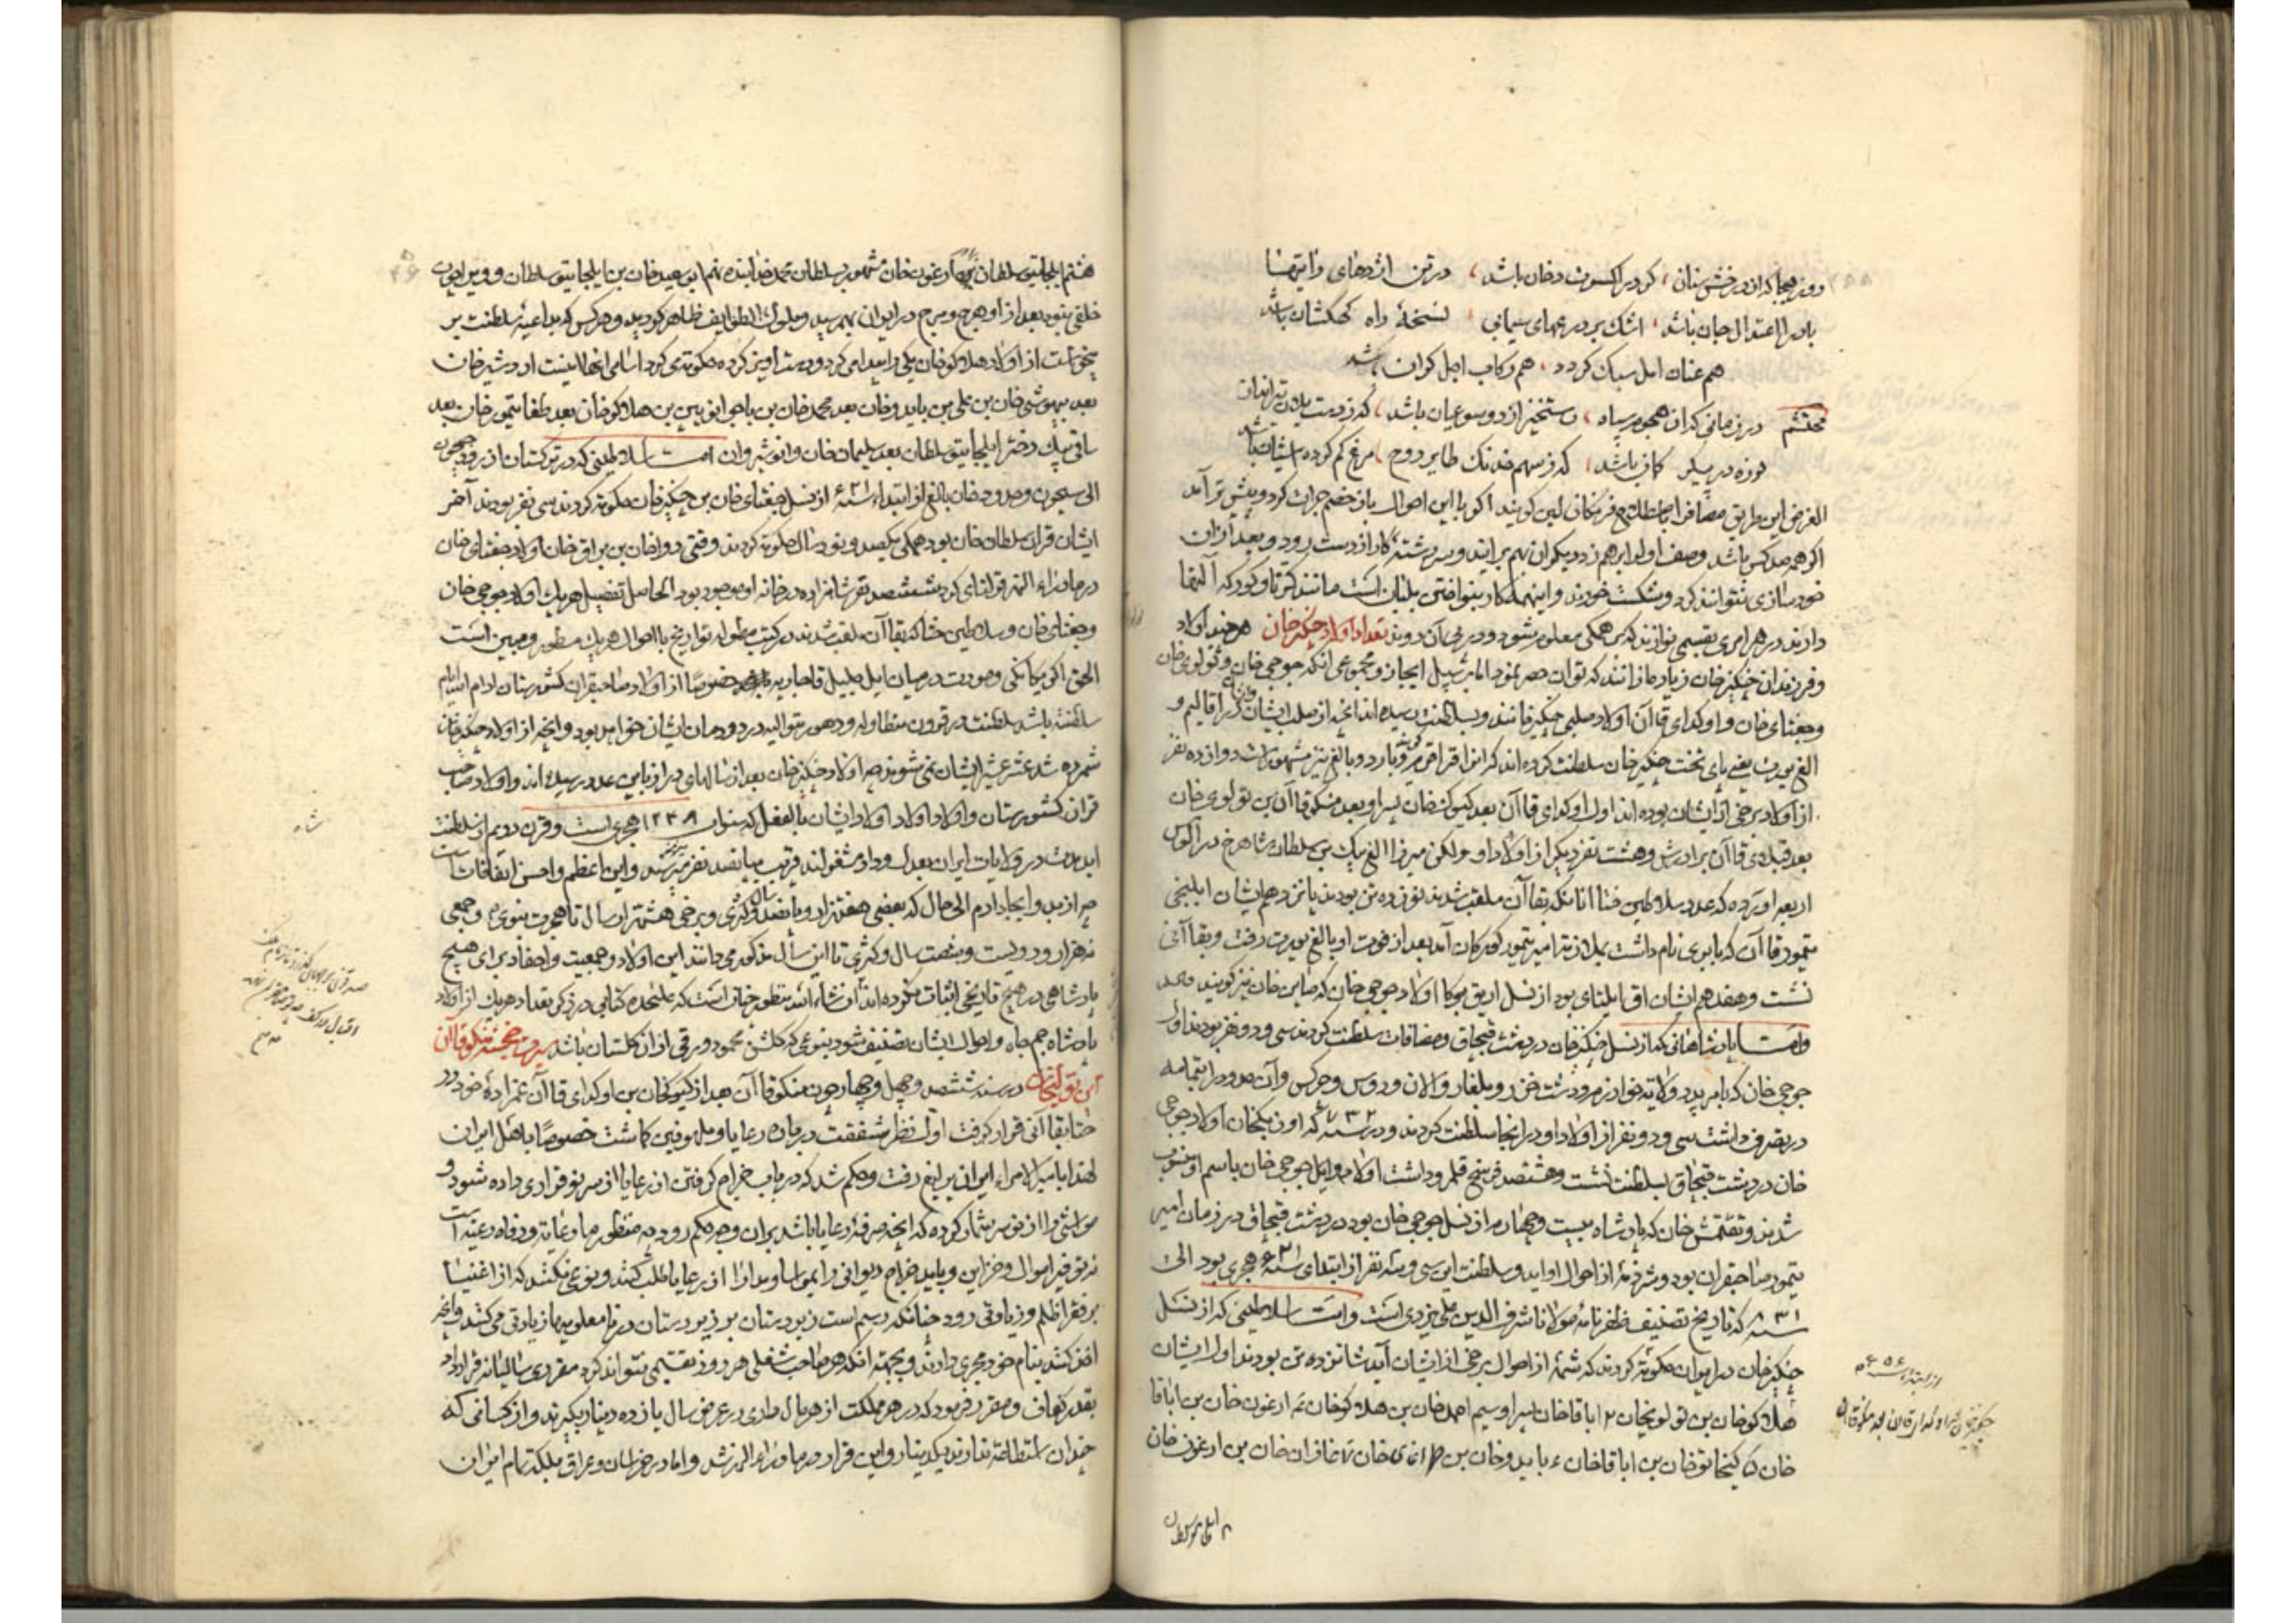 روز هیجا که از درخش سنان کرد بر اکسون دخان باشد در تن اژدهای رایتها
باد را اعتدال جان باشد اشک بر درعهای سیمابی نسخهٔ راه کهکشان باشد
هم عنان امل سبک کردد هم رکاب اجل کران باشد
محتشم در زمانی که از هجوم سپاه رستخیز از دو سو عیان باشد که ز دست یلان تیرانداز
لرزه در پیکر کمان باشد که ز سهم خدنک طایر روح مرغ کم کرده آشیان باشد
الغرض این طریق مصاف را باصطلاح فرنکان لین کویند اکر با این احوال باز خصم جرات کرد و پیش تر آمد
اکر همه صد کس باشد وصف اول را برهم زد دیکران بهم برایند و سررشتهٔ کار از دست رود و بعد از آن
خودسازی نتوانند کرد و شکست خورند و اینهمه کار بنواختن بلبان است مانند کرنا و کورکه آلتها
دارند در هر امری بقسمی نوازند که بر همکی معلوم شود و در پی آن روند تعداد اولاد چنکیز خان هر چند اولاد
و فرزندان چنکیز خان زیاده از آنند که توان حصر نمود اما بر سبیل ایجاز و مجموعی آنکه جوجی خان و تولوی خان
و جغتای خان و اوکدای قاآن اولاد صلبی چنکیز خانند و بسلطنت رسیده اند آنچه از صلب ایشان در اقالیم و
الغ یورت یعنی پای تخت چنکیز خان سلطنت کرده اند که آن را قراقرم و بارد و بالغ نیز مشهور است دوازده نفر
از اولاد برخی از ایشان بوده اند اول اوکدای قاآن بعد کیوک خان پسر او بعد منکو قاآن بن تولوی خان
بعد قبلای قاآن برادرش و هشت نفر دیکر از اولاد او ولکن میرزا الغ بیک بن سلطان شاهرخ در الوس
اربعه آورده که عدد سلاطین ختا آنانکه بقاآن ملقب شدند نوزده تن بودند پانزدهم ایشان ایلیجی
تیمور قاآن که بایری نام داشت بملازمت امیر تیمور کورکان آمد بعد از فوت او بالغ یورت رفت و بقاآنی
نشست و هفدهم ایشان اوردای بود از نسل اریق بوکا اولاد جوجی خان که صاین خان نیز کویند
و اما پادشاهانی که از نسل چنکیز خان در دشت قبچاق و مضافات سلطنت کردند سی و دو نفر بودند اول
جوجی خان که بامر پدر ولایة خوارزم و دشت خزر و بلغار و آلان و روس و چرکس و آن حدود را بتمامه
در تصرف داشت سی و دو نفر از اولاد او در آنجا سلطنت کردند و در سنه ۷۳۲ که اوزبکخان اولاد جوجی
خان در دشت قبچاق بسلطنت نشست و هشتصد فرسخ قلمرو داشت اولاد و ایل جوجی خان باسم او منسوب
شدند و تقتمش خان که پادشاه بیست و چهارم از نسل جوجی خان بود در دشت قبچاق در زمان امیر
تیمور صاحبقران بود و شرذمهٔ از احوال او آید و سلطنت این سی و سه نفر از ابتدای سنه ۶۲۱ هجری بود الی
سنه ۸۳۱ که تاریخ تصنیف ظفرنامهٔ مولانا شرف الدین علی یزدی است و اما سلاطینی که از نسل
چنکیز خان در ایران حکومة کردند که شمهٔ از احوال برخی از ایشان آید شانزده تن بودند اول ایشان
هلاکو خان بن تولویخان ۲ اباقا خان پسر او سیم احمد خان بن هلاکو خان ۴ ارغون خان بن اباقا
خان ۵ کیخاتو خان بن اباقا خان ۶ بایدو خان بن طراغای خان ۷ غازان خان بن ارغون خان
۸ ایلجایتو سلطان
از ابتداء سنه ۶۵۶
هشتم ایلجایتو سلطان بن ارغون خان مشهور بسلطان محمد خدابنده نهم ابوسعید خان بن ایلجایتو سلطان و وی را چون
خلفی نبود بعد از او هرج و مرج در ایران بهم رسید و ملوک الطوایف ظاهر کردید و هر کس که بداعیهٔ سلطنت بر
میخواست از اولاد هلاکو خان یکی را پیدا می کرد و دست آویز کرده حکومتی کرد اسامی آنها اینست اردشیر خان
بعد موسی خان بن علی بن بایدو خان بعد محمد خان بن بن هلاکو خان بعد طغاتیمور خان بعد
ساتی بیک دختر ایلجایتو سلطان بعد سلیمان خان و انوشیروان اما سلاطینی که در ترکستان از رود جیحون
الی سیحون و حدود خان بالغ از ابتداء سنه ۶۲۱ از نسل جغتای خان بن چنکیز خان حکومة کردند سی نفر بودند آخر
ایشان قزان سلطان خان بود همکی یکصد و نود سال حکومة کردند وقتی دوا خان بن براق خان اولاد جغتای خان
در ماوراء النهر قورلتای کرد ششصد نفر شاهزاده در خانه او موجود بود الحاصل تفصیل هر یک اولاد جوجی خان
و جغتای خان و سلاطین ختا که بقاآن ملقب شدند در کتب مطوله تواریخ با احوال هر یک مسطور و مبین است
الحق اکر یکانکی و مودت در میان ایل جلیل قاجاریه خصوصا از اولاد صاحبقران کشورستان ادام الله ایام
سلطنته باشد سلطنت در قرون متطاوله و دهور متوالیه در دودمان ایشان خواهد بود و آنچه از اولاد چنکیز خان
شمرده شد عشر عشیر ایشان نمی شوند چه اولاد چنکیز خان بعد از سالهای دراز باین عدد رسیده اند و اولاد صاحب
قران کشورستان و اولاد اولاد اولاد ایشان بالفعل که سنوات ۱۲۳۸ هجری است و قرن دویم از سلطنت
ابدمدت در ولایات ایران بعدل و داد مشغولند قریب بپانصد نفر میرسند و این اعظم و احسن اتفاقات است
چه از مبدا ایجاد آدم الی حال که بعضی هفت هزار و پانصد سال و کثری و برخی هشت هزار سال تا هجرت نبوی و جمعی
نه هزار و دویست و شصت سال و کثری تا این سال مذکور می دانند این اولاد و جمعیت و احفاد برای هیچ
پادشاهی در هیچ تاریخی اثبات نکرده اند ان شاء الله منظور چنان است که علیحده کتابی در ذکر تعداد هر یک از اولاد
پادشاه جم جاه و احوال ایشان تصنیف شود بنوعی که کلشن محمود ورقی از آن کلستان باشد سیرت خجسته منکو قاآن
ابن تولیخان در سنه ششصد و چهل و چهار چون منکو قاآن بعد از کیوکخان بن اوکدای قاآن عمزادهٔ خود در
ختا بقاآنی قرار کرفت اول نظر شفقت در باره رعایا و ملهوفین کماشت خصوصا باهل ایران
لهذا بامیرالامراء ایران یرلیغ رفت و حکم شد که در باب خراج کرفتن از رعایا از سر نو قراری داده شود و
مواشی را از نو سرشمار کرده که آنچه صرفهٔ رعایا باشد بر آن وجه حکم رود چه منظور ما رعایة و رفاه رعیة است
نه توفیر اموال و خزاین و باید خراج دیوانی را بمواسا و مدارا از رعایا طلب کنند و نوعی نکنند که از اغنیا
بر فقرا ظلم و زیادتی رود چنانکه رسم است زبردستان بر زیردستان در نامعلومیها زیادتی می کنند و آنچه
اخذ کنند بنام خود مجری دارند و بجهة آنکه هر صاحب شغلی هر روز تقسیمی نتواند کرد مقرری سالیانه قرار داد
بقدر کفاف و مقرر فرمود که در هر مملکت از هر مال داری در عرض سال یازده دینار بکیرند و از کسانی که
چندان استطاعة ندارند یک دینار و این قرار در ماوراء النهر شد و اما در خراسان و عراق بلکه تمام ایران
شاه